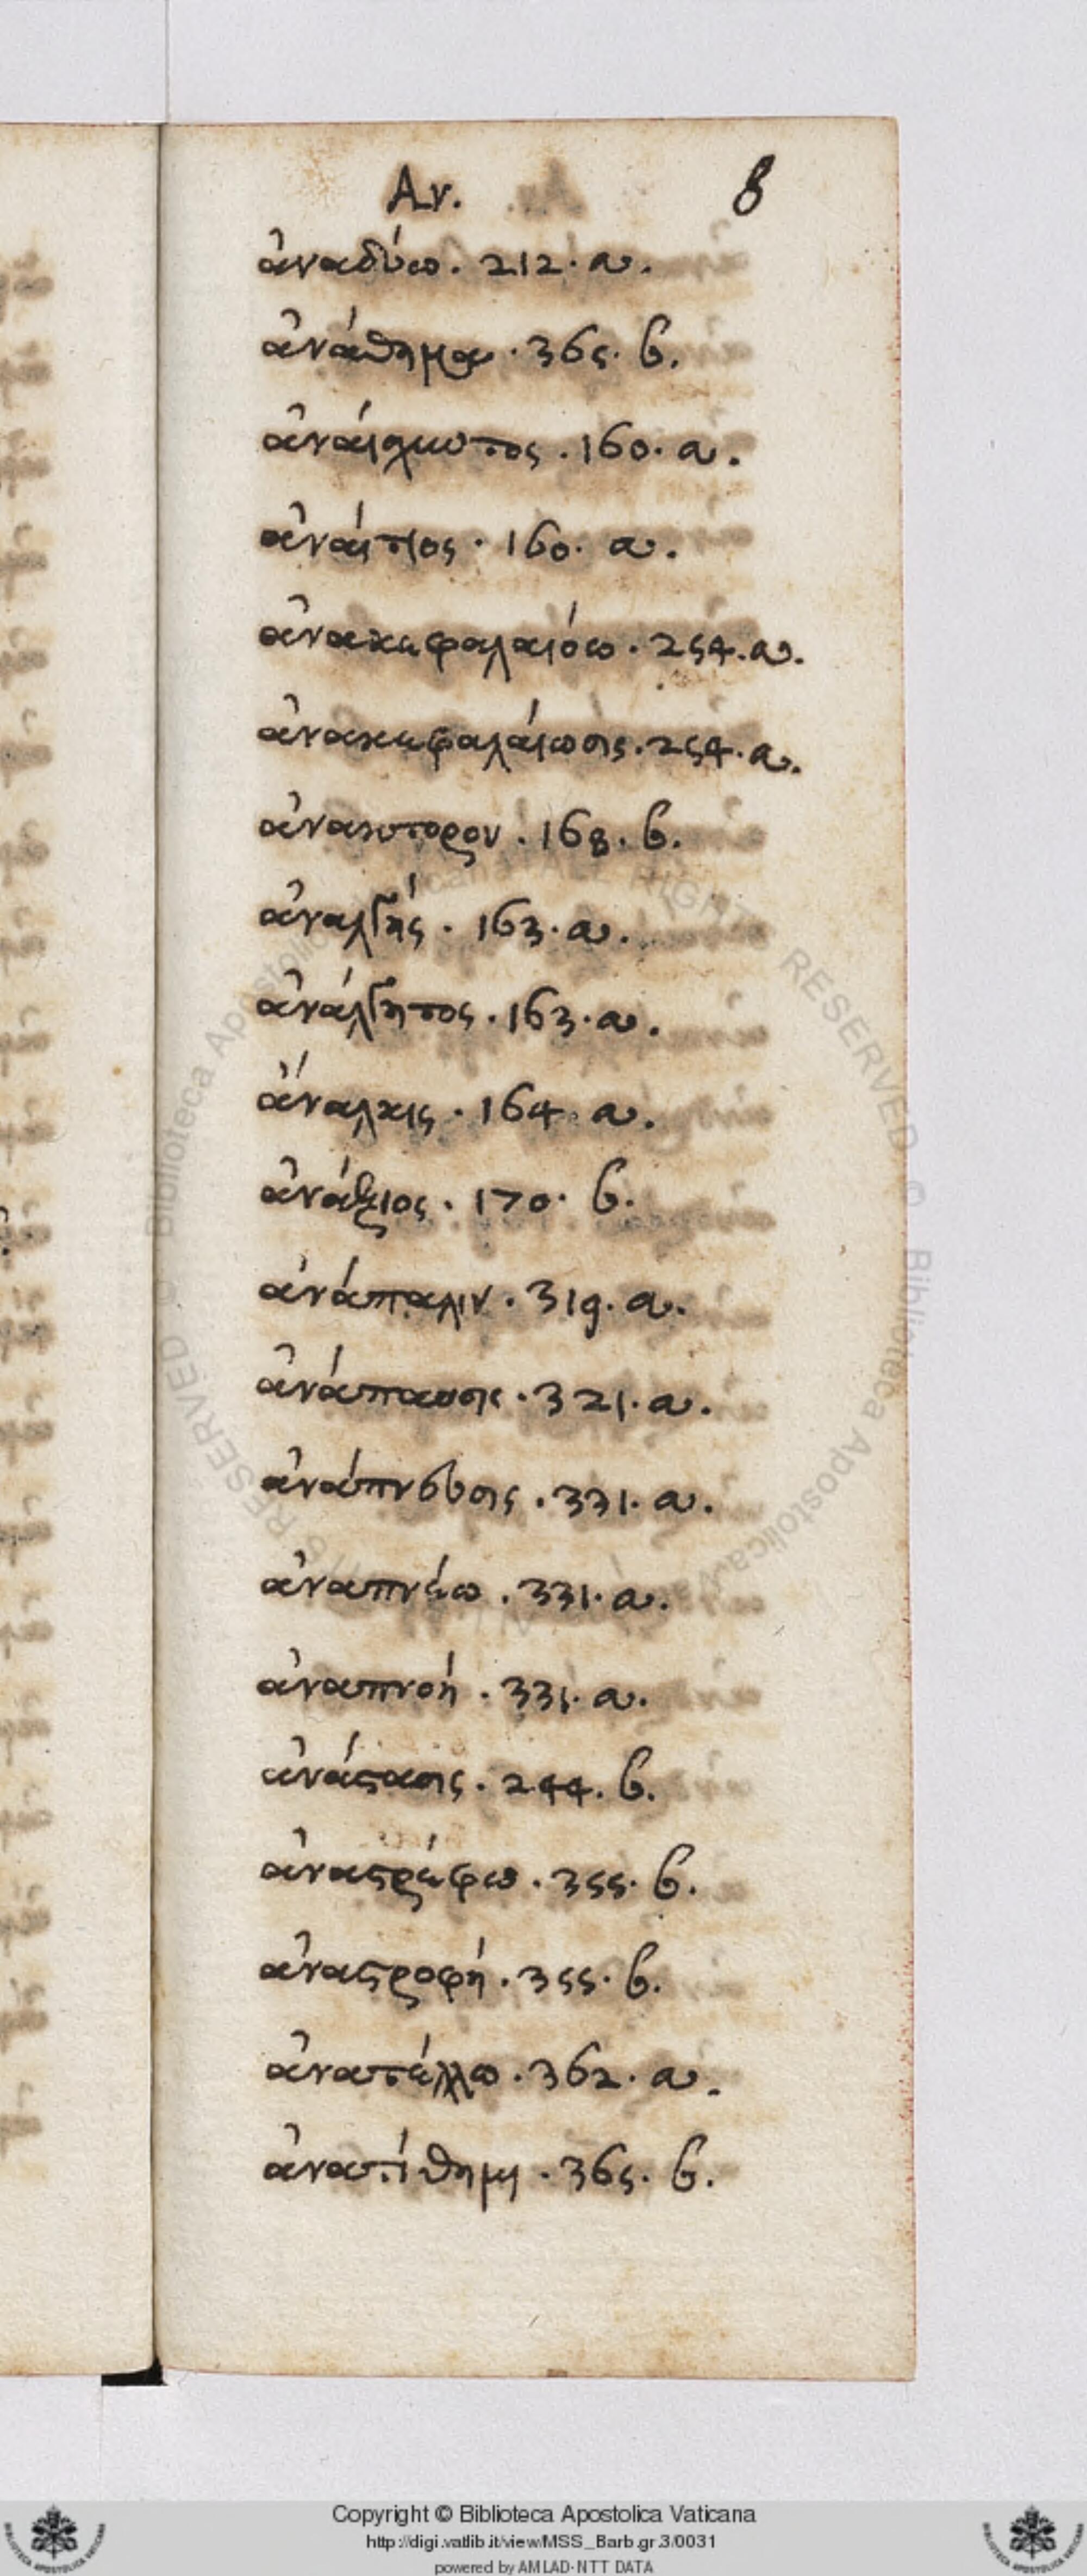 Αν. 8
ἀναδύω. 212. α.
ἀνάθημα. 365. β.
ἀνάισχυντος. 160. α.
ἀνάιτιος. 160. α.
ἀνακεφαλαιόω. 254. α.
ἀνακεφαλάιωσις. 254. α.
ἀνακτορον. 168. β.
ἀναλγής. 163. α.
ἀνάλγητος. 163. α.
ἄναλκις. 164. α.
ἀνάξιος. 170. β.
ἀνάπαλιν. 319. α.
ἀνάπαυσις. 321. α.
ἀνάπνευσις. 331. α.
ἀναπνέω. 331. α.
ἀναπνοή. 331. α.
ἀνάστασις. 244. β.
ἀναστρέφω. 355. β.
ἀναστροφή. 355. β.
ἀνατέλλω. 362. α.
ἀνατίθημι. 365. β.
Copyright © Biblioteca Apostolica Vaticana
http://digi.vatlib.it/view/MSS_Barb.gr.3/0031
powered by AMLAD-NTT DATA